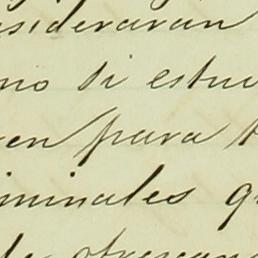 sideraran
no si estu
en para t
iminales q